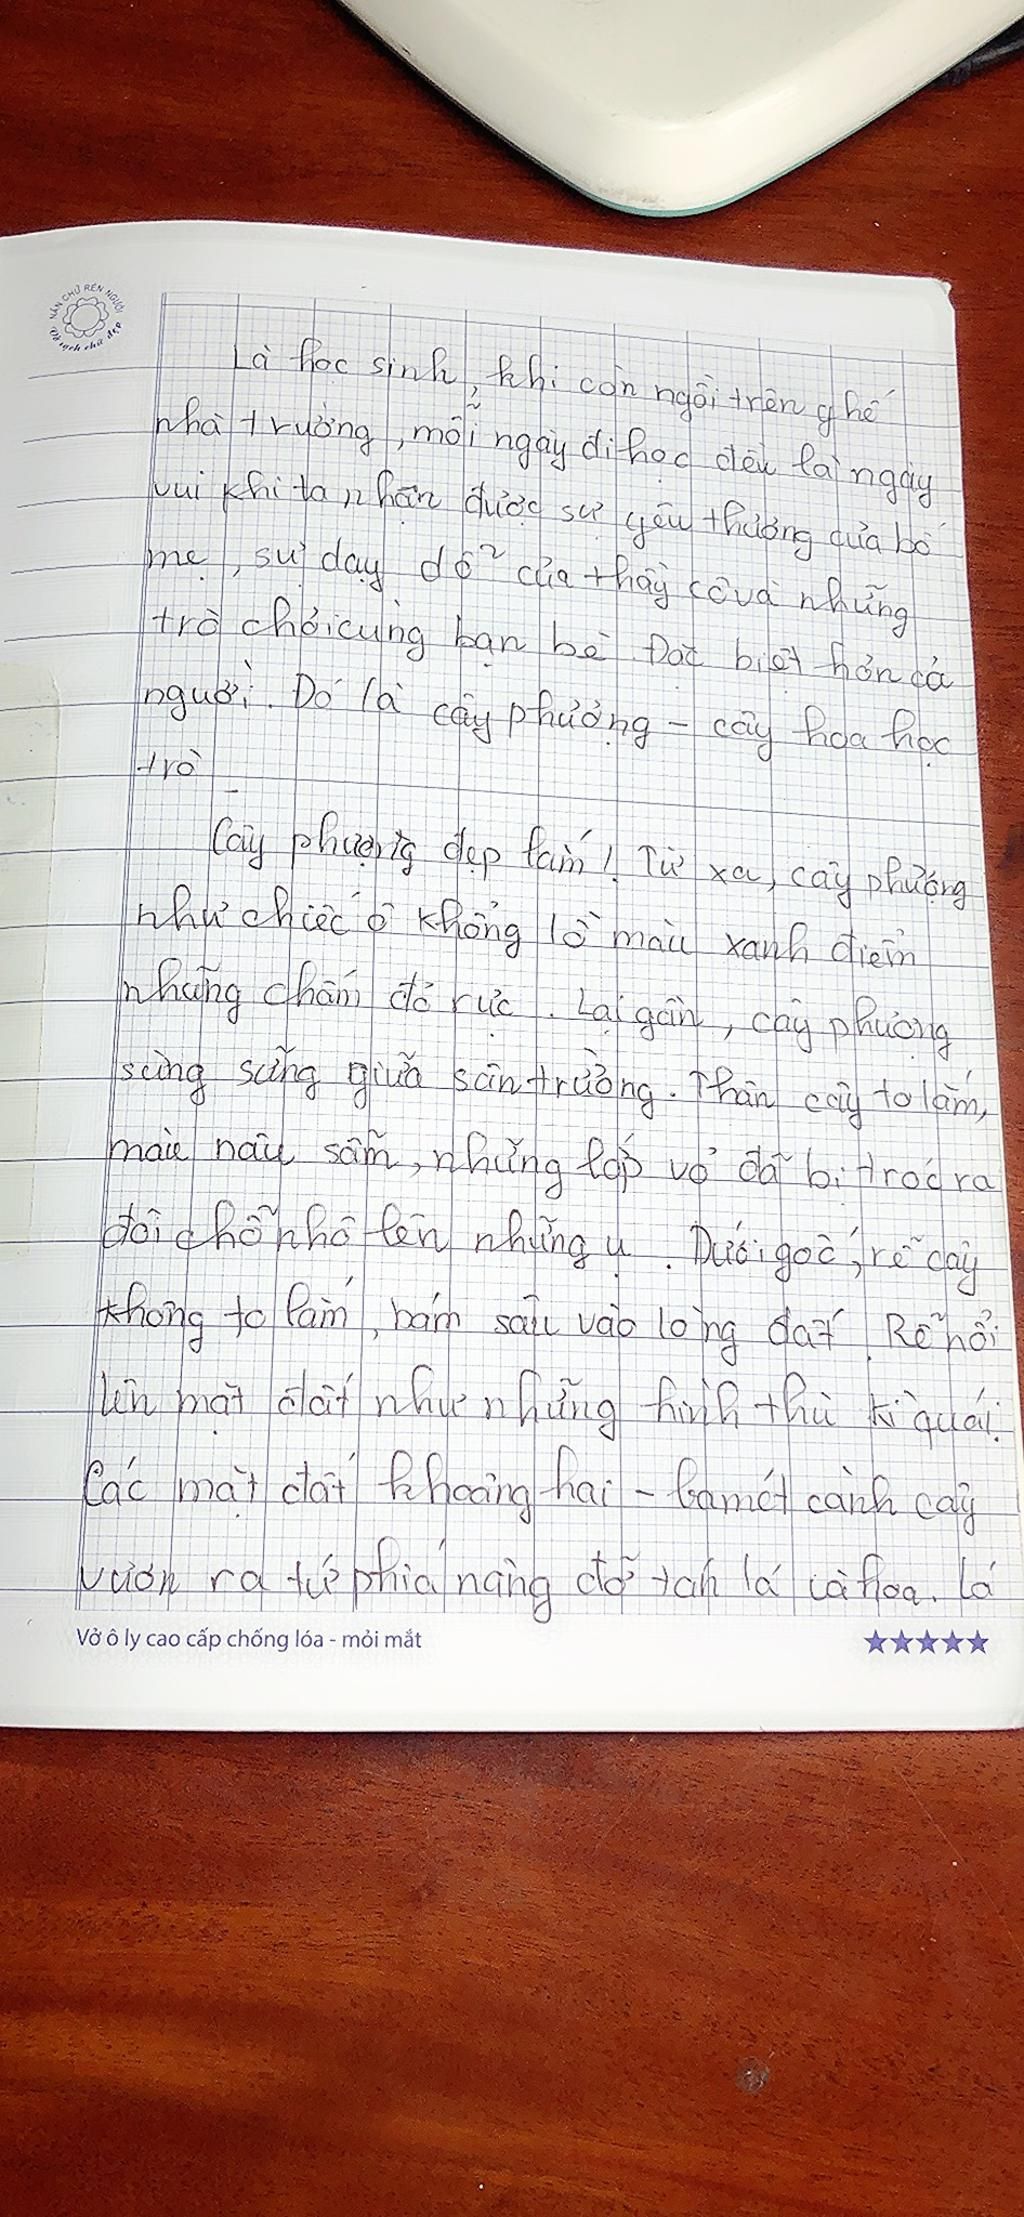 NẮN CHỮ RÈN NGƯỜI
Vở sạch chữ đẹp
Là học sinh, khi còn ngồi trên ghế
nhà trường, mỗi ngày đi học đều là ngày
vui khi ta nhận được sự yêu thương của bố
mẹ, sự dạy dỗ của thầy cô và những
trò chơi cùng bạn bè. Đặc biệt hơn cả
người. Đó là cây phượng - cây hoa học
trò
Cây phượng đẹp lắm! Từ xa, cây phượng
như chiếc ô khổng lồ màu xanh điểm
những chấm đỏ rực. Lại gần, cây phượng
sừng sững giữa sân trường. Thân cây to lắm,
màu nâu sẫm, những lớp vỏ đã bị tróc ra
đôi chỗ nhô lên những ụ. Dưới gốc, rễ cây
không to lắm, bám sâu vào lòng đất. Rễ nổi
lên mặt đất như những hình thù kì quái.
Các mặt đất khoảng hai - ba mét cành cây
vươn ra tứ phía nâng đỡ tán lá và hoa. Lá
Vở ô ly cao cấp chống lóa - mỏi mắt